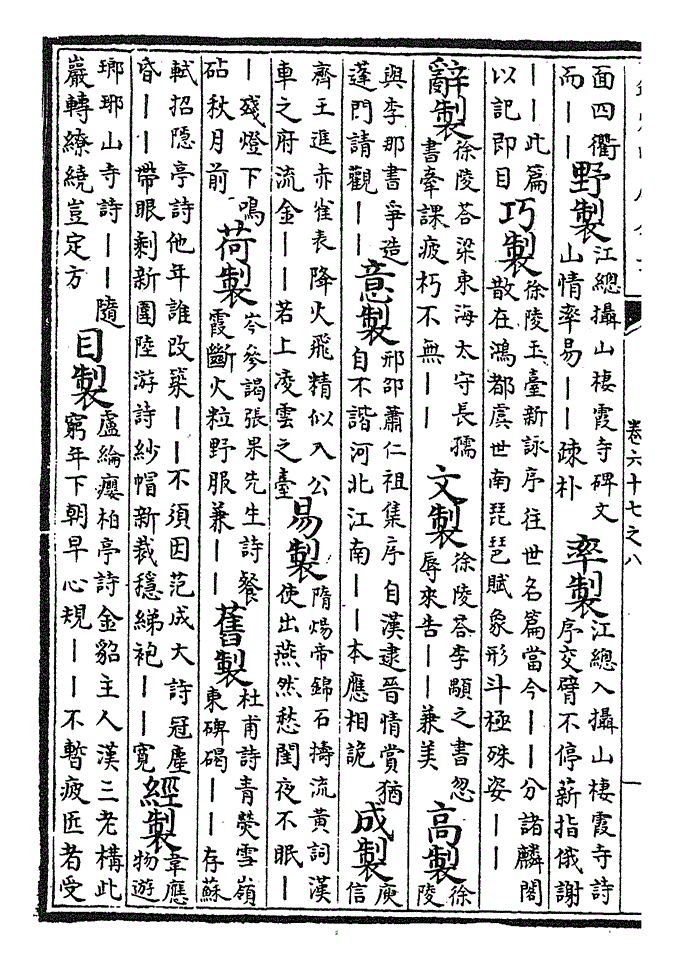 面四衢
而——
野製
江總攝山棲霞寺碑文
山情率易——疎朴
率製
江總入攝山棲霞寺詩
序交臂不停薪指俄謝
——此篇
以記即目
巧製
徐陵玉臺新詠序往世名篇當今——分諸麟閣
散在鴻都虞世南琵琶賦象形斗極殊姿——
辭製
徐陵荅梁東海太守長孺
書牽課疲朽不無——
文製
徐陵荅李顒之書忽
辱來告——兼美
高製
徐
陵
與李那書爭造
蓬門請觀——
意製
邢邵蕭仁祖集序自漢逮晉情賞猶
自不諧河北江南——本應相詭
成製
庾
信
齊王進赤雀表降火飛精似入公
車之府流金——若上凌雲之臺
易製
隋煬帝錦石擣流黃詞漢
使出燕然愁閨夜不眠—
—殘燈下鳴
砧秋月前
荷製
岑參謁張果先生詩餐
霞斷火粒野服兼——
舊製
杜甫詩青熒雪嶺
東碑碣——存蘇
軾招隱亭詩他年誰改築——不須因范成大詩冠塵
昏——帶眼剩新圍陸游詩紗帽新裁穩綈袍——寬
經製
韋應
物遊
瑯琊山寺詩——隨
巖轉繚繞豈定方
目製
盧綸癭柏亭詩金貂主人漢三老構此
窮年下朝早心規——不暫疲匠者受
卷六十七之八